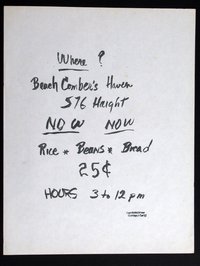 Where ?
Beach Comber's Haven
576 Haight
NOW NOW
Rice * Beans * Bread
25¢
HOURS 3 to 12 pm